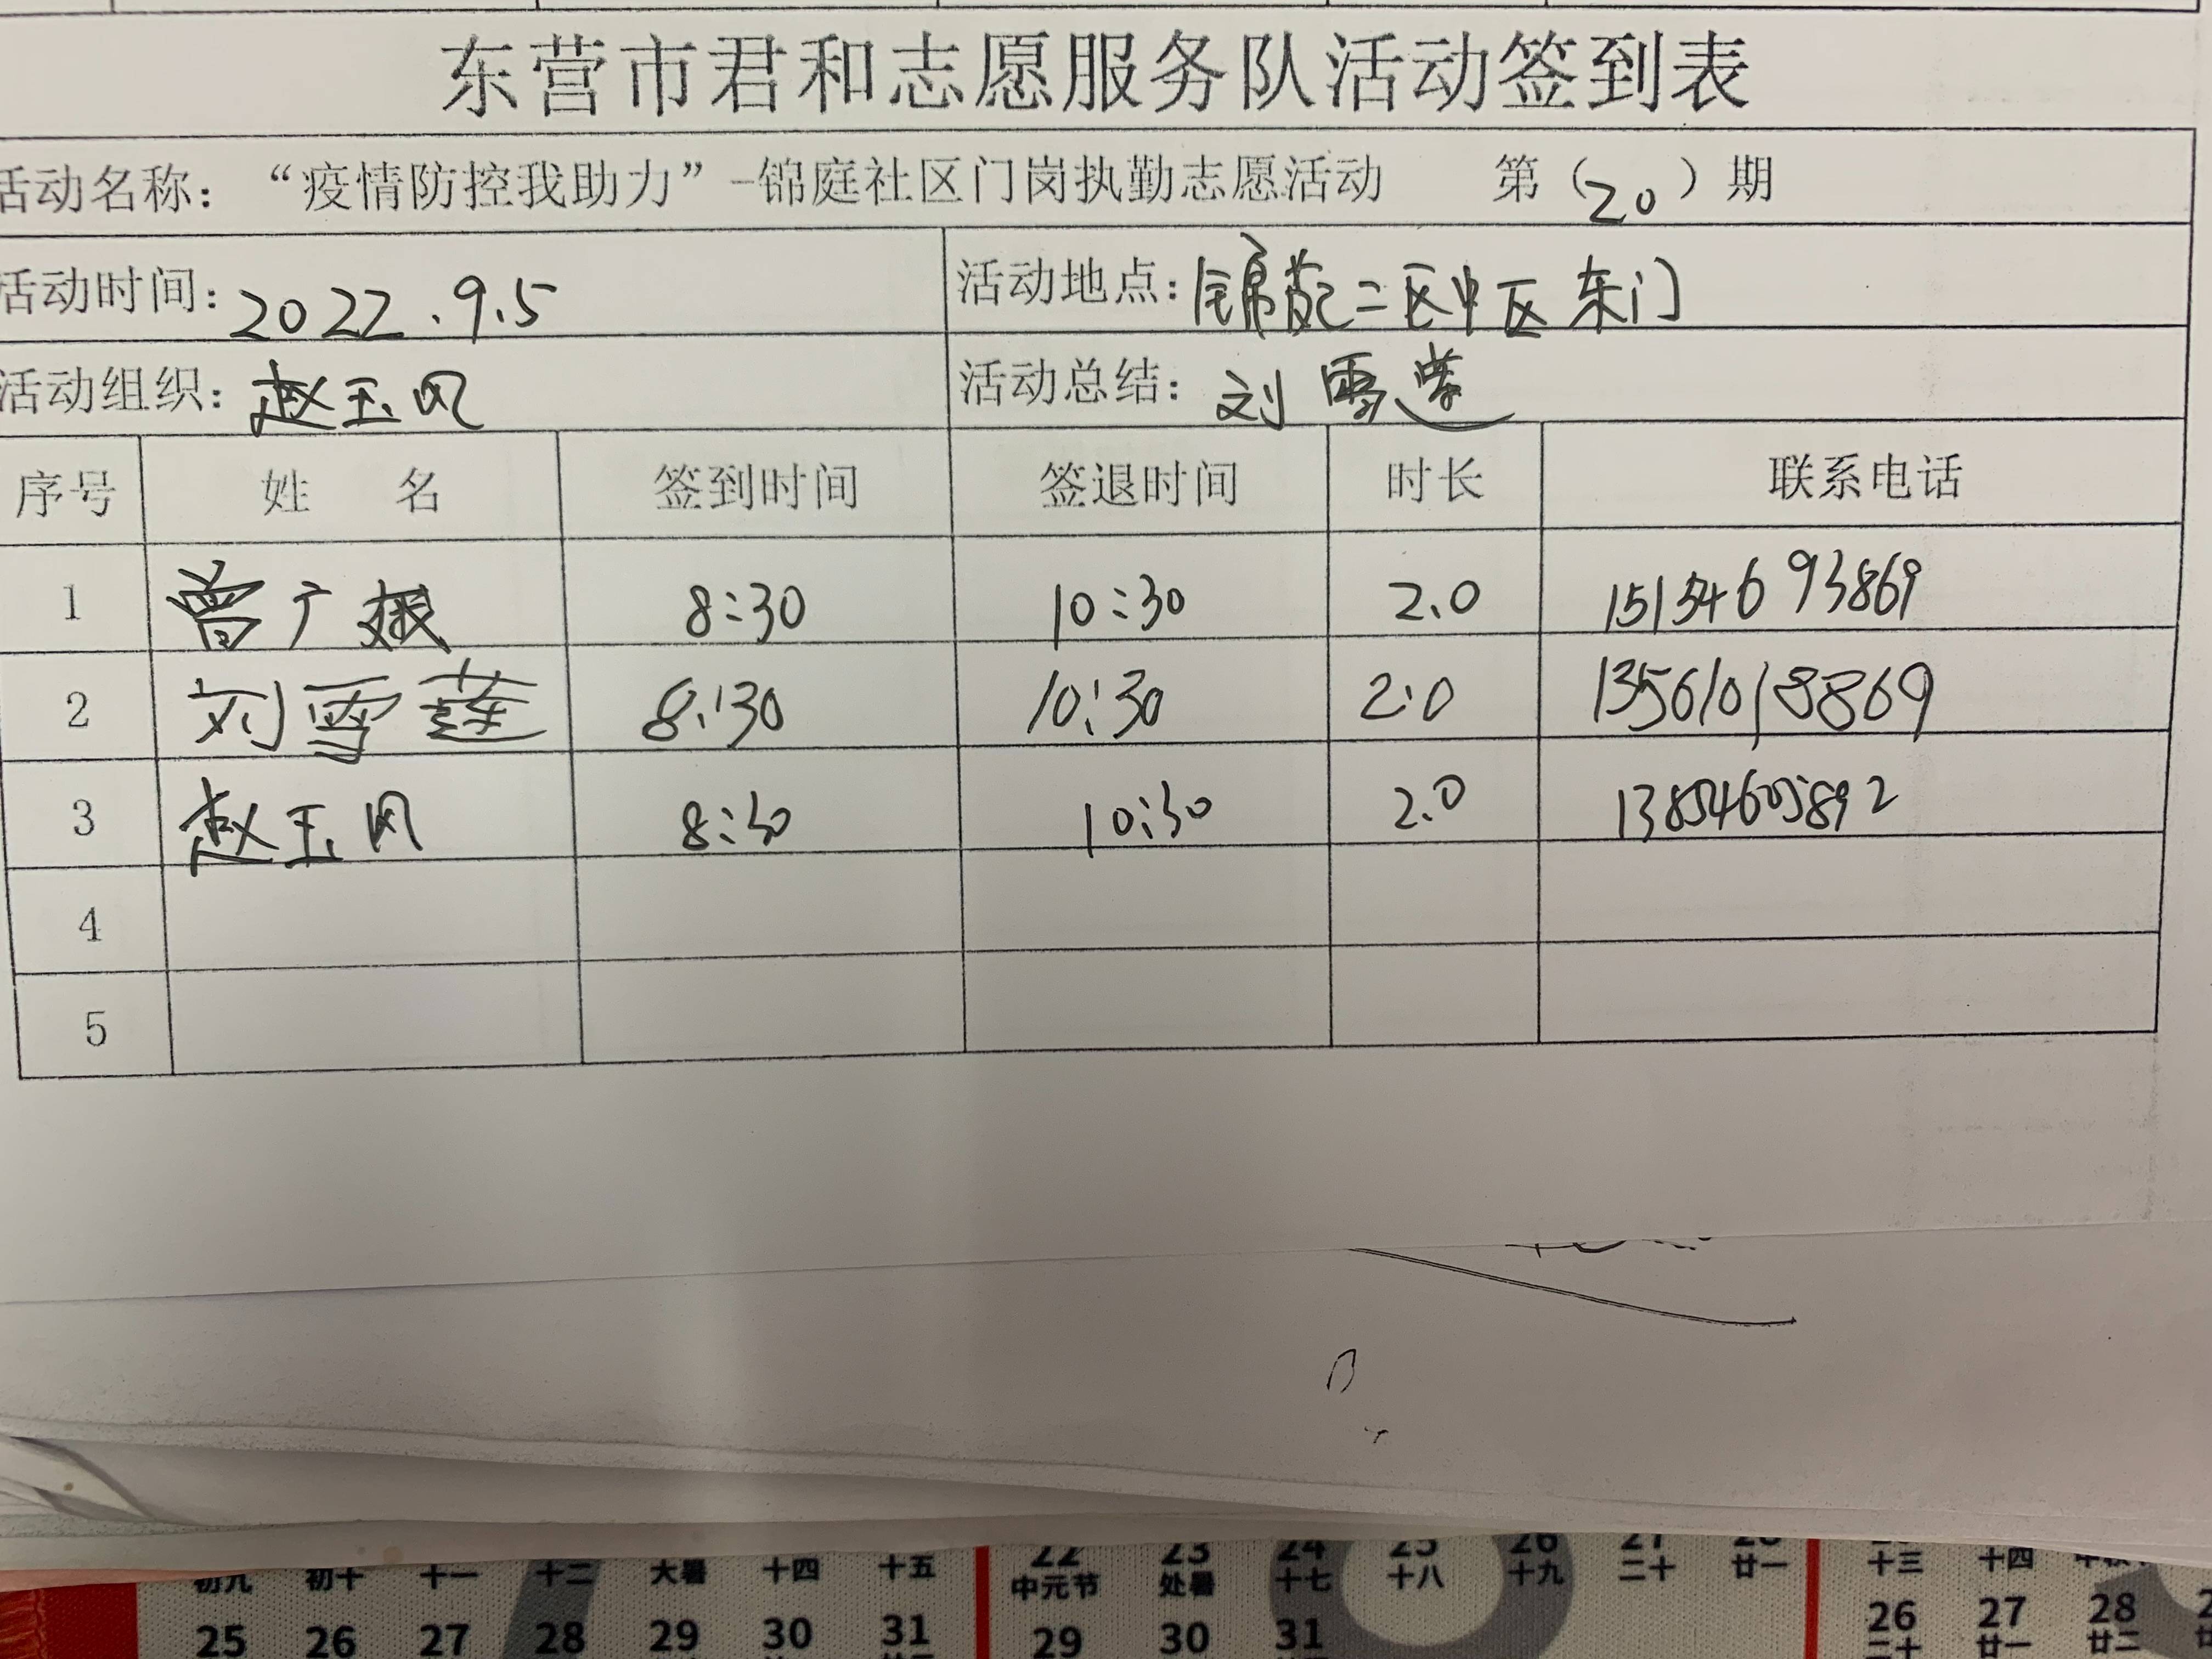 东营市君和志愿服务队活动签到表
活动名称：“疫情防控我助力”-锦庭社区门岗执勤志愿活动 第（20）期
活动时间：2022.9.5 活动地点：锦苑二区中区东门
活动组织：赵玉凤 活动总结：刘雪莲
序号 姓 名 签到时间 签退时间 时长 联系电话
1 曾广 8:30 10:30 2.0 15154693869
2 刘雪莲 8:30 10:30 2.0 13561018869
3 赵玉凤 8:30 10:30 2.0 13854605892
4
5
初九 初十 十一 十二 大暑 十四 十五 22 23 24 25 26 27 28 十三 十四
中元节 处暑 十七 十八 十九 二十 廿一
25 26 27 28 29 30 31 29 30 31 26 27 28
二十 廿一 廿二